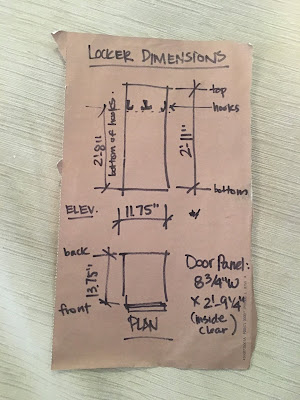 LOCKER DIMENSIONS
top
hooks
2'-8"
bottom of hooks
2'-11"
bottom
ELEV.
11.75"
back
13.75"
front
PLAN
Door Panel:
8 3/4" W
x 2'-9 1/4"
(inside
clear)